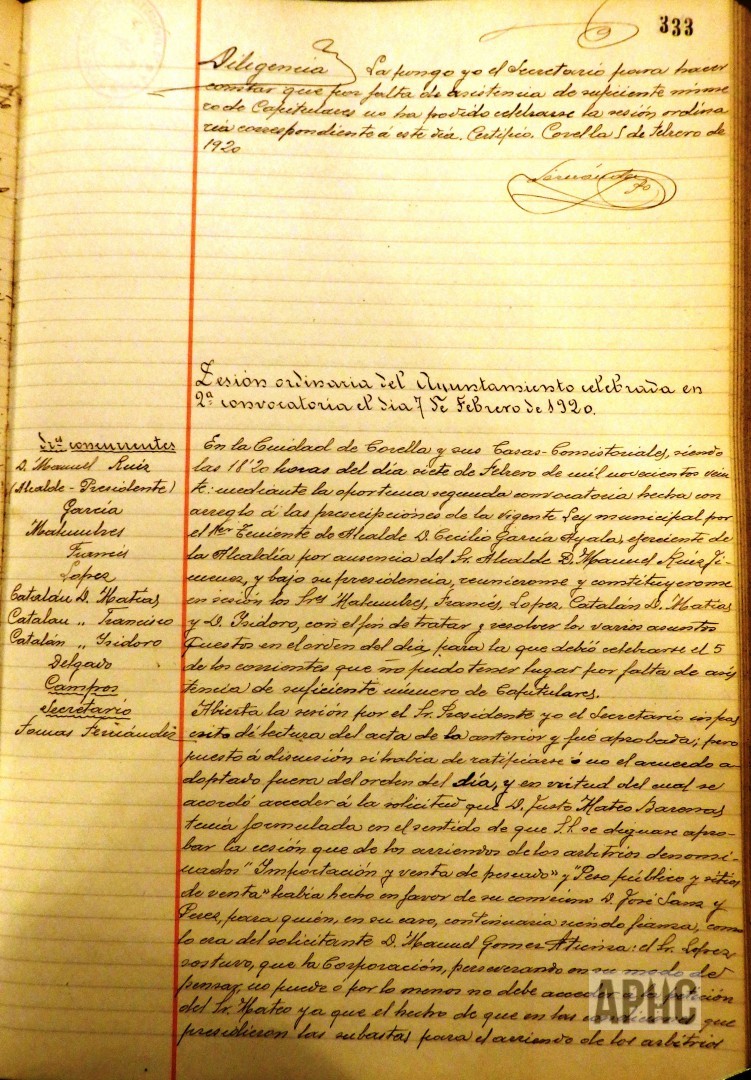 333
Diligencia La pongo yo el Secretario para hacer
constar que por falta de asistencia de suficiente núme
ro de Capitulares no ha podido celebrarse la sesión ordina
ria correspondiente á este día. Certifico. Corella 5 de febrero de
1920
Fernández
Sesión ordinaria del Ayuntamiento celebrada en
2ª convocatoria el día 7 de Febrero de 1920.
Sres concurrentes
D. Manuel Ruiz
(Alcalde-Presidente)
García
Malumbres
Francés
Lopez
Catalán D. Matias
Catalan " Francisco
Catalán " Isidoro
Delgado
Campos
Secretario
Tomas Fernández
En la Ciudad de Corella y sus Casas-Consistoriales, siendo
las 18'20 horas del día siete de Febrero de mil novecientos vein
te: mediante la oportuna segunda convocatoria hecha con
arreglo á las prescripciones de la vigente Ley municipal por
el 1er Teniente de Alcalde D. Cecilio García Ayala, ejerciente de
la Alcaldía por ausencia del Sr. Alcalde D. Manuel Ruiz Ji-
menez, y bajo su presidencia, reunieronse y constituyeronse
en sesión los Sres Malumbres, Francés, Lopez, Catalán D. Matías
y D. Isidoro, con el fin de tratar y resolver los varios asuntos
puestos en el orden del día para la que debió celebrarse el 5
de los corrientes que no pudo tener lugar por falta de asis
tencia de suficiente número de Capitulares.
Abierta la sesión por el Sr. Presidente yo el Secretario infras
crito dí lectura del acta de la anterior y fué aprobada; pero
puesto á discusión si habia de ratificarse ó no el acuerdo a-
doptado fuera del orden del día, y en virtud del cual se
acordó acceder á la solicitud que D. Justo Mateo
tenía formulada en el sentido de que S.S. se dignase apro-
bar la cesión que de los arriendos de los arbitrios denomi-
nados "Importación y venta de pescado" y "Peso público y sitios
de venta" había hecho en favor de su convecino D. José Sanz y
Perez, para quién, en su caso, continuaría siendo fianza, como
lo era del solicitante D. Manuel Gomez Atienza: el Sr. Lopez
sostuvo, que la Corporación, perseverando en su modo de
pensar, no puede ó por lo menos no debe acceder á la petición
del Sr. Mateo ya que el hecho de que en las condiciones que
presidieron las subastas para el arriendo de los arbitrios
APHC